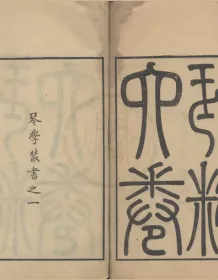 琴粹
四卷
琴學叢書之一